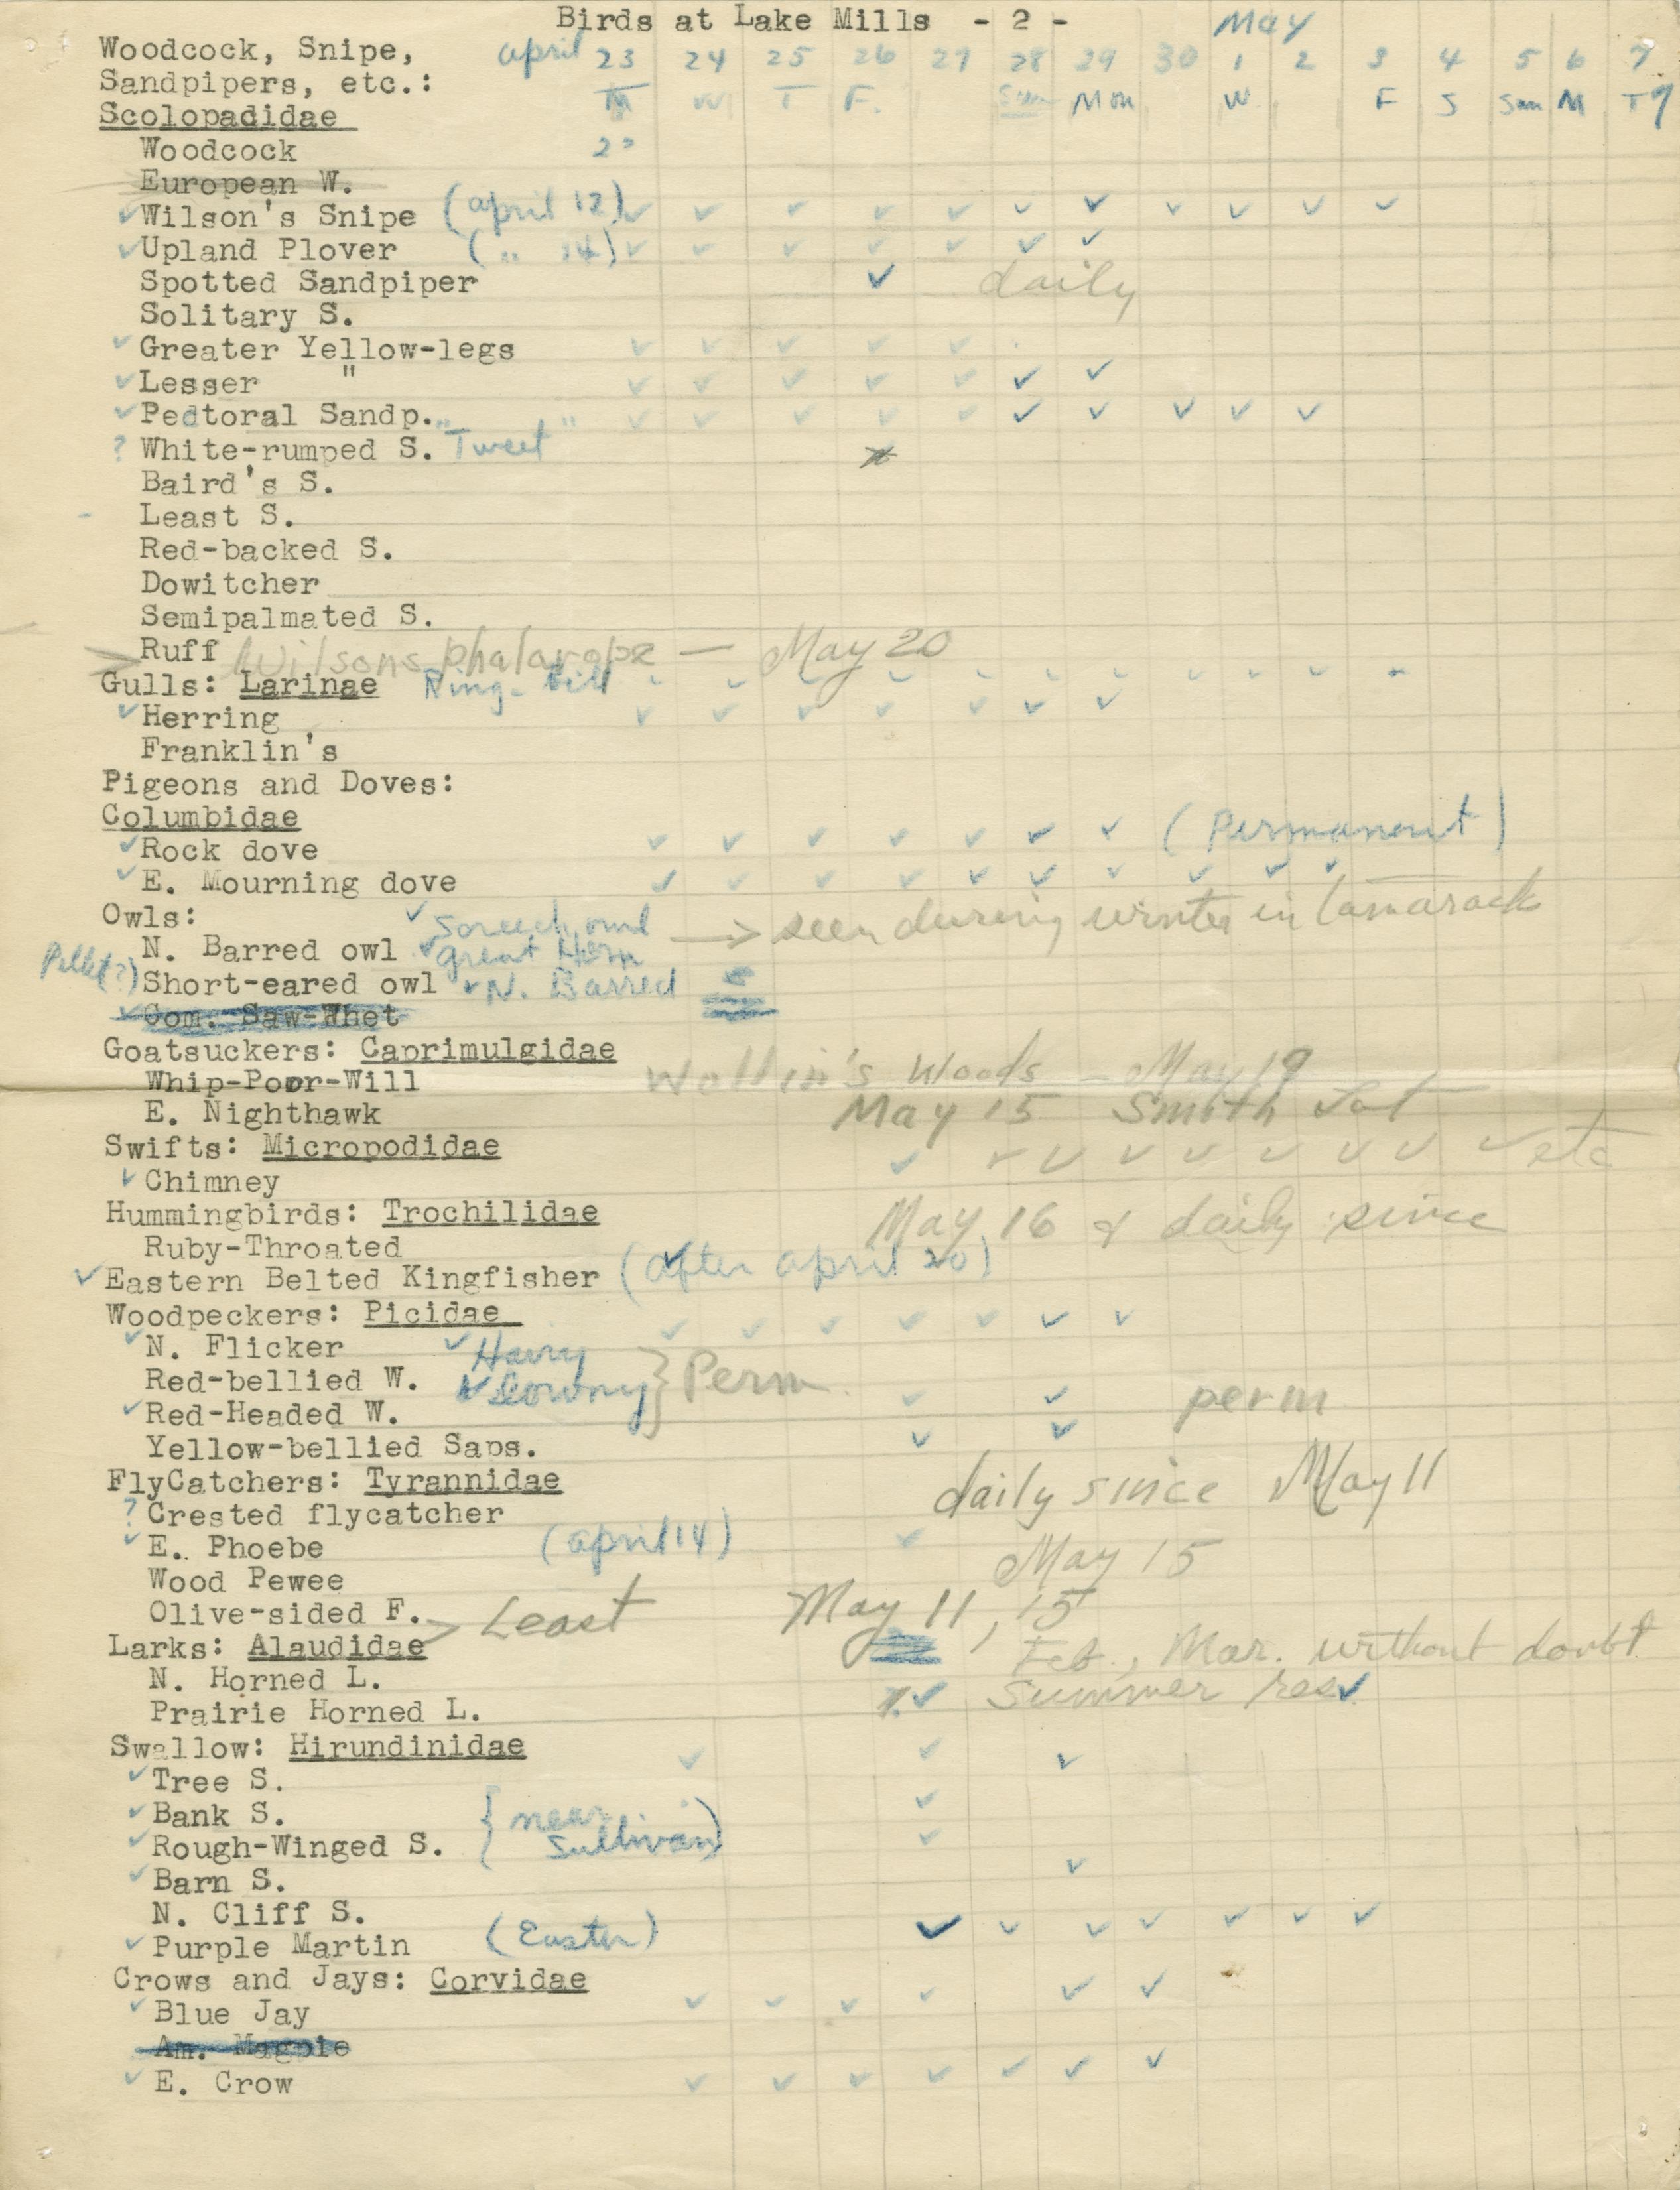 Birds at Lake Mills - 2 -
May
Woodcock, Snipe,
april 23 24 25 26 27 28 29 30 1 2 3 4 5 6 7
Sandpipers, etc.:
T W T F. Sun Mon W F S Sun M T
Scolopadidae
Woodcock
European W.
✓ Wilson's Snipe (april 12) ✓ ✓ ✓ ✓ ✓ ✓ ✓ ✓ ✓ ✓ ✓
✓ Upland Plover ( " 14) ✓ ✓ ✓ ✓ ✓ ✓ ✓
Spotted Sandpiper ✓ daily
Solitary S.
✓ Greater Yellow-legs ✓ ✓ ✓ ✓ ✓
✓ Lesser " ✓ ✓ ✓ ✓ ✓ ✓ ✓
✓ Pectoral Sandp. ✓ ✓ ✓ ✓ ✓ ✓ ✓ ✓ ✓ ✓
? White-rumped S. "Tweet"
Baird's S.
- Least S.
Red-backed S.
Dowitcher
Semipalmated S.
Ruff Wilsons phalarope — May 20
Gulls: Larinae Ring-bill ✓ ✓ ✓ ✓ ✓ ✓ ✓ ✓ ✓ ✓
✓ Herring ✓ ✓ ✓ ✓ ✓ ✓ ✓
Franklin's
Pigeons and Doves:
Columbidae
✓ Rock dove ✓ ✓ ✓ ✓ ✓ ✓ ✓ (Permanent)
✓ E. Mourning dove ✓ ✓ ✓ ✓ ✓ ✓ ✓ ✓ ✓ ✓
Owls: ✓ Screech owl → seen during winter in tamarack
N. Barred owl ✓ great Horn
Pellet(?) Short-eared owl ✓ N. Barred
✓ Com. Saw-Whet
Goatsuckers: Caprimulgidae
Whip-Poor-Will Woods — May 19
E. Nighthawk May 15 Smith
Swifts: Micropodidae
✓ Chimney ✓ ✓ ✓ ✓ ✓ ✓ ✓ ✓ ✓ etc
Hummingbirds: Trochilidae
Ruby-Throated May 16 & daily since
✓ Eastern Belted Kingfisher (after april 20)
Woodpeckers: Picidae
✓ N. Flicker ✓ Hairy ✓ ✓ ✓ ✓ ✓ ✓ ✓
Red-bellied W. ✓ Downy } Perm.
✓ Red-Headed W. ✓ ✓ perm
Yellow-bellied Saps. ✓ ✓
FlyCatchers: Tyrannidae
? Crested flycatcher daily since May 11
✓ E. Phoebe (april 14) ✓
Wood Pewee May 15
Olive-sided F. > Least May 11, 15
Larks: Alaudidae
N. Horned L. Feb., Mar. without doubt
Prairie Horned L. ✓ Summer res ✓
Swallow: Hirundinidae
✓ Tree S. ✓ ✓ ✓
✓ Bank S. { near ✓
✓ Rough-Winged S. Sullivan) ✓
✓ Barn S. ✓
N. Cliff S.
✓ Purple Martin (Easter) ✓ ✓ ✓ ✓ ✓ ✓ ✓
Crows and Jays: Corvidae
✓ Blue Jay ✓ ✓ ✓ ✓ ✓ ✓
Am. Magpie
✓ E. Crow ✓ ✓ ✓ ✓ ✓ ✓ ✓